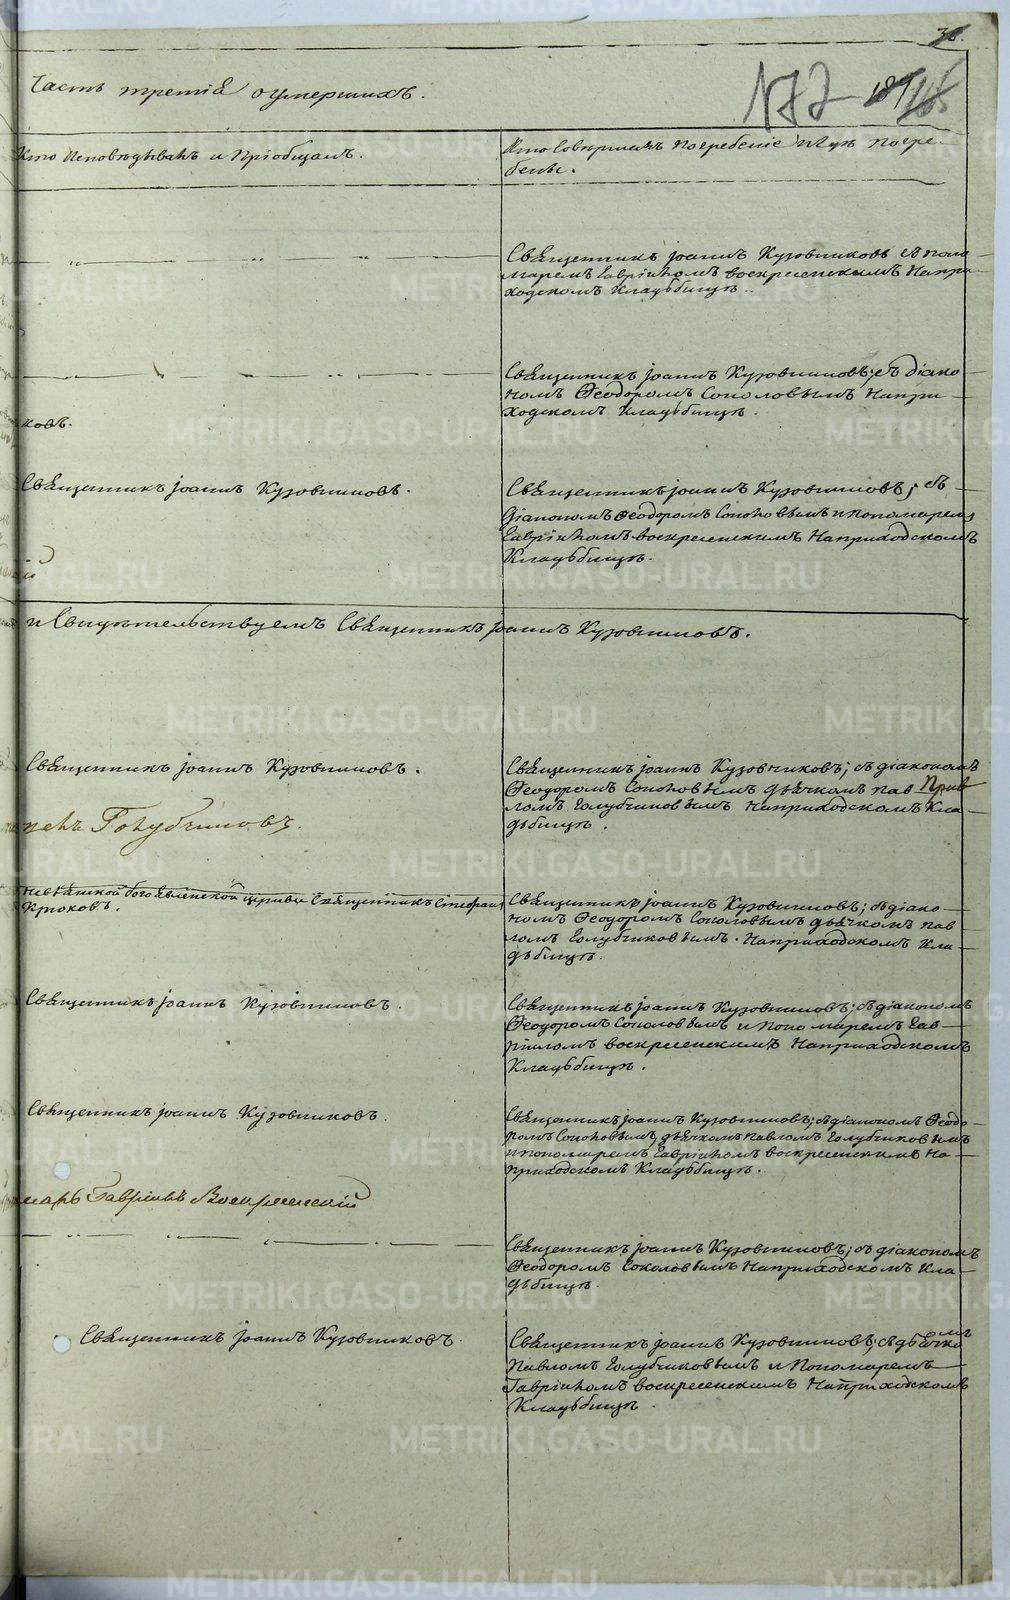 METRIKI.GASO-URAL.RU
36.
Часть третіѧ оумершихъ.
172
Кто Исповѣдывалъ и Пріобщалъ.
Кто Совершалъ Погребеніе и гдѣ погре-
бены.
Священникъ Іоаннъ Кузовниковъ съ поно-
маремъ Гавріиломъ воскресенскимъ На при-
ходскомъ Кладьбищѣ.
Священникъ Іоаннъ Кузовниковъ; съ діако-
номъ Ѳеодоромъ Соколовымъ На при-
ходскомъ Кладьбищѣ.
ковъ.
Священникъ Іоаннъ Кузовниковъ.
Священникъ Іоаннъ Кузовниковъ; съ
Діакономъ Ѳеодоромъ Соколовымъ и пономаремъ
Гавріиломъ воскресенскимъ На приходскомъ
Кладьбищѣ.
ій
и Свидѣтельствуемъ Священникъ Іоаннъ Кузовниковъ.
Священникъ Іоаннъ Кузовниковъ.
Священникъ Іоаннъ Кузовчиковъ; съ діакономъ
Ѳеодоромъ Соколовымъ дьячкомъ пав
ломъ Голубчиковымъ На приходскомъ Кла-
дьбищѣ.
Голубчиковъ.
богоявленской церкви Священникъ Стефанъ
Крюковъ.
Священникъ Іоаннъ Кузовниковъ; съ діако-
номъ Ѳеодоромъ Соколовымъ дьячкомъ пав
ломъ Голубчиковымъ. На приходскомъ Кла-
дьбищѣ.
Священникъ Іоаннъ Кузовниковъ.
Священникъ Іоаннъ Кузовниковъ; съ діакономъ
Ѳеодоромъ Соколовымъ и пономаремъ Гав-
ріиломъ воскресенскимъ На приходскомъ
Кладьбищѣ.
Священникъ Іоаннъ Кузовниковъ.
Священникъ Іоаннъ Кузовниковъ; съ діакономъ Ѳеодо-
ромъ Соколовымъ, дьячкомъ павломъ Голубчиковымъ
и пономаремъ Гавріиломъ воскресенскимъ На-
приходскомъ Кладьбищѣ.
марь Гавріилъ Воскресенскій
Священникъ Іоаннъ Кузовниковъ; съ діакономъ
Ѳеодоромъ Соколовымъ На приходскомъ Кла-
дьбищѣ.
Священникъ Іоаннъ Кузовниковъ.
Священникъ Іоаннъ Кузовниковъ; съ дьячкомъ
Павломъ Голубчиковымъ и Пономаремъ
Гавріиломъ воскресенскимъ На приходскомъ
Кладьбищѣ.